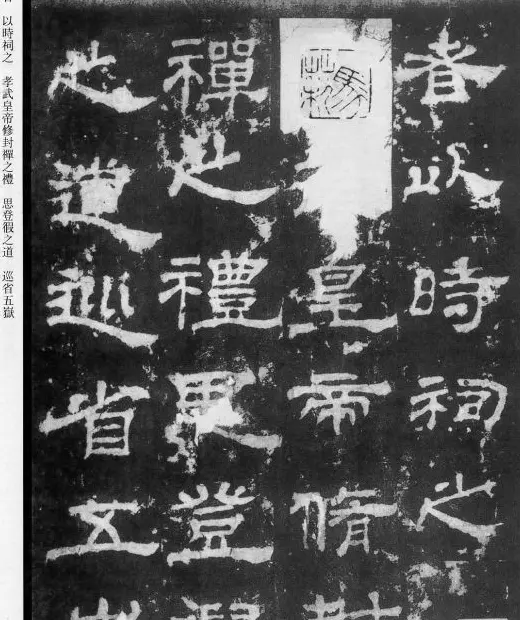 者以時祠之
皇帝脩封
禪之禮思登假
之道巡省五嶽
以時祠之 孝武皇帝修封禪之禮 思登假之道 巡省五嶽